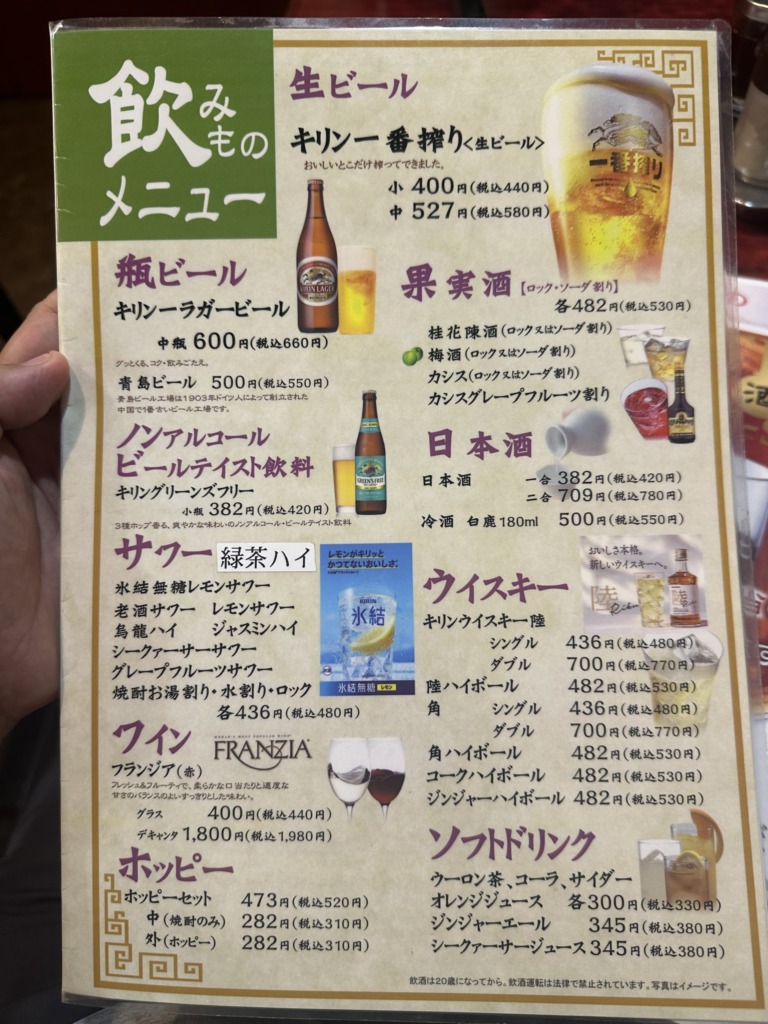 飲みもの
メニュー
生ビール
キリン一番搾り<生ビール>
おいしいとこだけ搾ってできました。
小 400円(税込440円)
中 527円(税込580円)
一番搾り
瓶ビール
キリンラガービール
中瓶 600円(税込660円)
グッとくる、コク・飲みごたえ。
青島ビール 500円(税込550円)
青島ビール工場は1903年ドイツ人によって創立された
中国で1番古いビール工場です。
KIRIN LAGER
ノンアルコール
ビールテイスト飲料
キリングリーンズフリー
小瓶 382円(税込420円)
3種ホップ香る、爽やかな味わいのノンアルコール・ビールテイスト飲料
GREEN'S FREE
サワー 緑茶ハイ
氷結無糖レモンサワー
老酒サワー レモンサワー
烏龍ハイ ジャスミンハイ
シークァーサーサワー
グレープフルーツサワー
焼酎お湯割り・水割り・ロック
各436円(税込480円)
レモンがキリッと
かつてないおいしさ。
KIRIN
氷結
氷結無糖 レモン
ワイン
FRANZIA
フランジア(赤)
フレッシュ&フルーティで、柔らかな口当たりと適度な
甘さのバランスのよいすっきりとした味わい。
グラス 400円(税込440円)
デキャンタ 1,800円(税込1,980円)
ホッピー
ホッピーセット 473円(税込520円)
中(焼酎のみ) 282円(税込310円)
外(ホッピー) 282円(税込310円)
果実酒【ロック・ソーダ割り】
各482円(税込530円)
桂花陳酒(ロック又はソーダ割り)
梅酒(ロック又はソーダ割り)
カシス(ロック又はソーダ割り)
カシスグレープフルーツ割り
日本酒
日本酒 一合 382円(税込420円)
二合 709円(税込780円)
冷酒 白鹿180ml 500円(税込550円)
おいしさ本格。
新しいウイスキーへ。
陸
Riku
ウイスキー
キリンウイスキー陸
シングル 436円(税込480円)
ダブル 700円(税込770円)
陸ハイボール 482円(税込530円)
角 シングル 436円(税込480円)
ダブル 700円(税込770円)
角ハイボール 482円(税込530円)
コークハイボール 482円(税込530円)
ジンジャーハイボール 482円(税込530円)
ソフトドリンク
ウーロン茶、コーラ、サイダー
オレンジジュース 各300円(税込330円)
ジンジャーエール 345円(税込380円)
シークァーサージュース 345円(税込380円)
飲酒は20歳になってから。飲酒運転は法律で禁止されています。写真はイメージです。